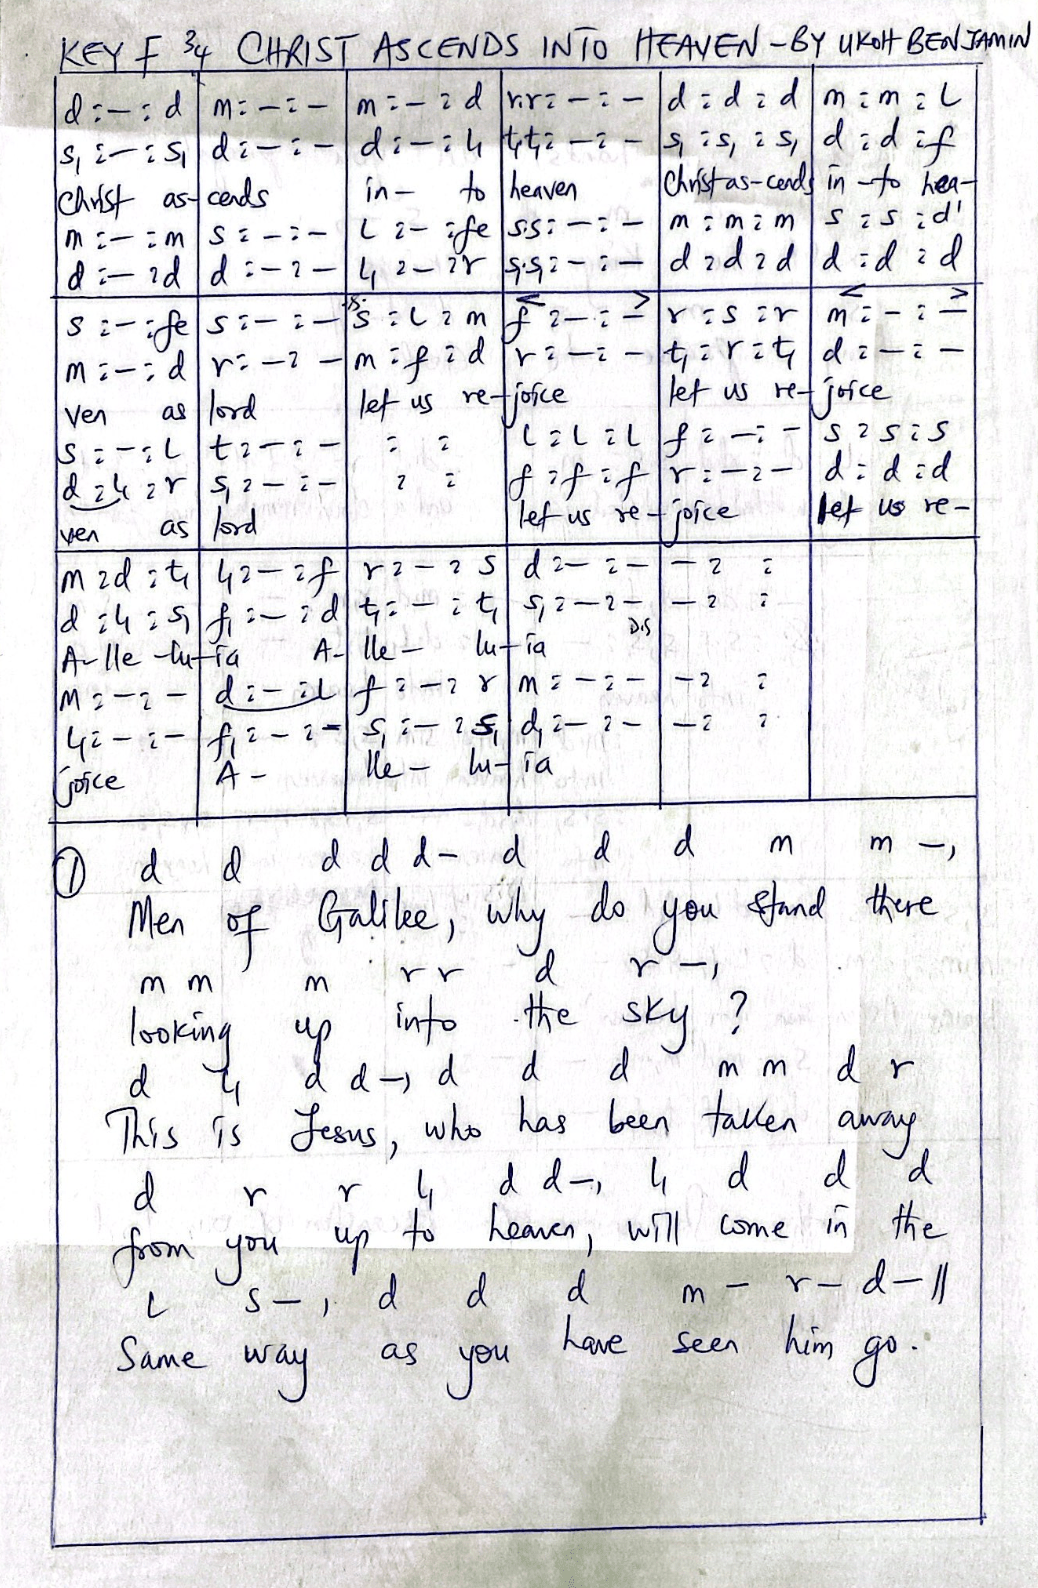 KEY F 3/4 CHRIST ASCENDS INTO HEAVEN - BY UKOH BENJAMIN
d:-:d | m:-:- | m:-:d | r.r:-:- | d:d:d | m:m:l
s₁:-:s₁ | d:-:- | d:-:l₁ | t₁.t₁:-:- | s₁:s₁:s₁ | d:d:f
Christ as- | cends | in- to | heaven | Christ as-cends | in-to hea-
m:-:m | s:-:- | l:-:fe | s.s:-:- | m:m:m | s:s:d'
d:-:d | d:-:- | l₁:-:r | s₁.s₁:-:- | d:d:d | d:d:d
s:-:fe | s:-:- | .s. s:l:m | < f:-:- > | r:s:r | < m:-:- >
m:-:d | r:-:- | m:f:d | r:-:- | t₁:r:t₁ | d:-:-
ven as | lord | let us re- | joice | let us re- | joice
s:-:l | t:-:- | : : | l:l:l | f:-:- | s:s:s
d:l₁:r | s₁:-:- | : : | f:f:f | r:-:- | d:d:d
ven as | lord | | let us re- | joice | let us re-
m:d:t₁ | l₁:-:f | r:-:s | d:-:- | -: :
d:l₁:s₁ | f₁:-:d | t₁:-:t₁ | s₁:-:- | -: :
D.S
A-lle-lu- | ia A- | lle- lu- | ia
m:-:- | d:-:l | f:-:r | m:-:- | -: :
l₁:-:- | f₁:-:- | s₁:-:s₁ | d₁:-:- | -: :
joice | A- | lle- lu- | ia
① d d d d d- d d d m m -,
Men of Galilee, why do you stand there
m m m r r d r -,
looking up into the sky?
d l₁ d d-, d d d m m d r
This is Jesus, who has been taken away
d r r l₁ d d-, l₁ d d d
from you up to heaven, will come in the
l s-, d d d m- r- d-||
Same way as you have seen him go.